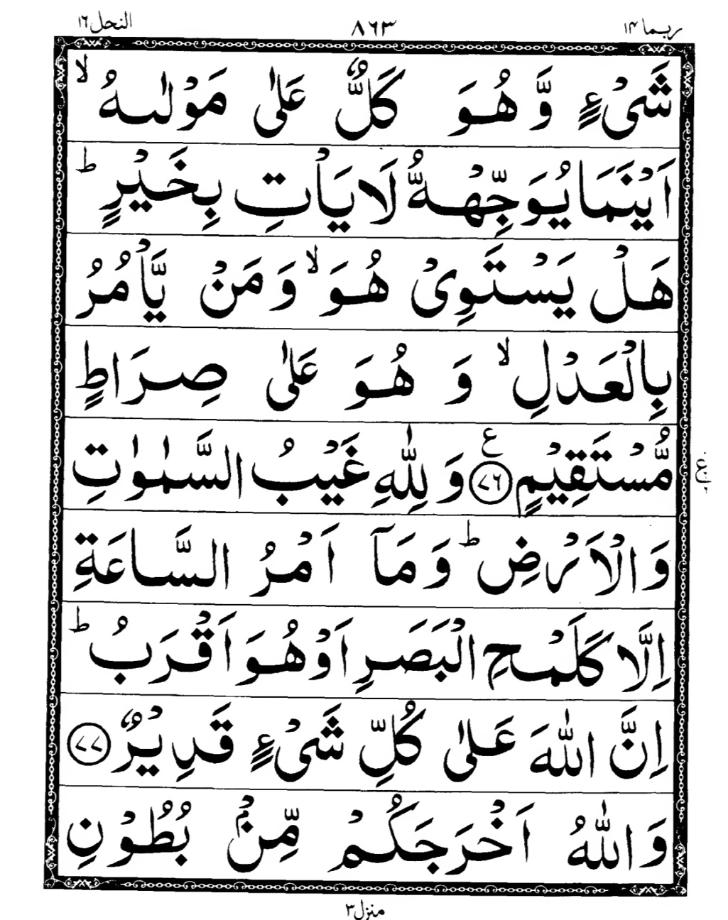 ربما ١٤ ٨٦٣ النحل ١٦
شَیْءٍ وَّ هُوَ كَلٌّ عَلٰی مَوْلٰىهُ ۙ
اَیْنَمَا یُوَجِّهْهُّ لَا یَاْتِ بِخَیْرٍ ؕ
هَلْ یَسْتَوِیْ هُوَ ۙ وَ مَنْ یَّاْمُرُ
بِالْعَدْلِ ۙ وَ هُوَ عَلٰی صِرَاطٍ
مُّسْتَقِیْمٍ ﴿۷۶﴾ ع وَ لِلّٰهِ غَیْبُ السَّمٰوٰتِ
وَالْاَرْضِ ؕ وَ مَاۤ اَمْرُ السَّاعَةِ
اِلَّا كَلَمْحِ الْبَصَرِ اَوْ هُوَ اَقْرَبُ ؕ
اِنَّ اللّٰهَ عَلٰی كُلِّ شَیْءٍ قَدِیْرٌ ﴿۷۷﴾
وَاللّٰهُ اَخْرَجَكُمْ مِّنْۢ بُطُوْنِ
منزل ٣